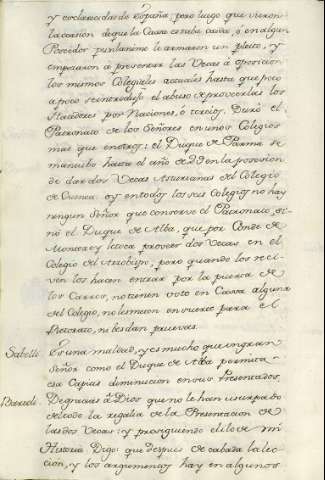 y esclarecidas de España; pero luego que vieron
la ocasion de que la Casa estaba caída, ó en algun
Posedor pusilanime le armaron un pleito, y
empezaron a presentar las Vecas á oposicion
los mismos Colegiales actuales hasta que poco
a poco se introdujo el abuso de proveerlas los
Hacedores por Naciones, ó tercios. Duró el
Patronato de los Señores en unos Colegios
mas que en otros: el Duque de Parma se
mantubo hasta el año de 29 en la posesion
de dar dos Vecas Asturianas del Colegio
de Cuenca. oy en todos los seis Colegios no hay
ningun Señor que conserve el Patronato, si
nó el Duque de Alba, que por Conde de
Monterey le toca proveer dos Vecas en el
Colegio del Arzobispo; pero quando los reci-
ven los hacen entrar por la puerta de
los Carros, no tienen voto en Cosa alguna
del Colegio, no les meten en suerte para el
Rectorato, ni les dan pruevas.
Sabelli. Es una maldad, y es mucho que un gran
Señor como el Duque de Alba permita
esa Capitis diminucion en sus Presentados.
Degracias á Dios que no le han usurpado
del todo la regalia de la Presentacion de
las dos Vecas: y prosiguiendo el ilo de mi
Historia Digo: que despues de acabada la lec-
cion, y los argumentos hay en algunos